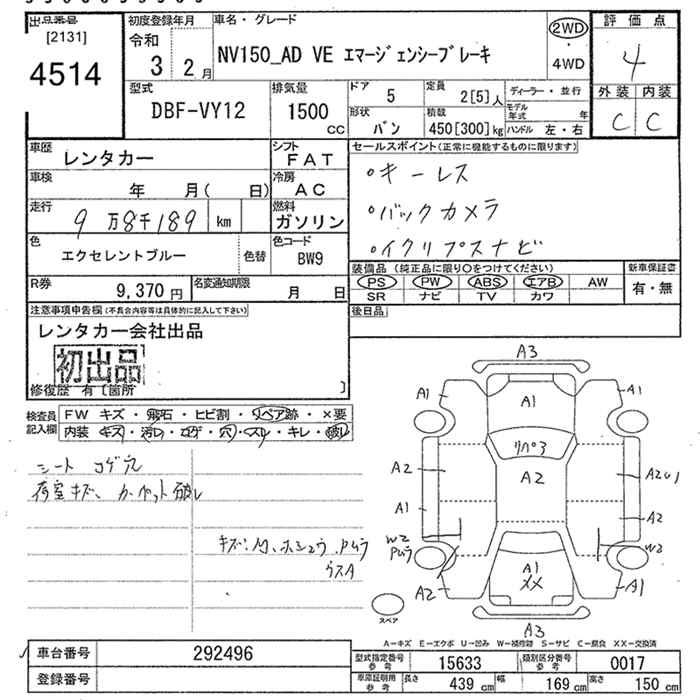 出品番号
[2131]
4514
初度登録年月
令和
3 2月
車名・グレード
NV150_AD VE エマージェンシーブレーキ
2WD
・
4WD
評価点
4
外装 内装
C C
型式
DBF-VY12
排気量
1500
CC
ドア 5
定員 2[5]人
ディーラー・並行
形状 バン
積載 450[300]kg
モデル年式 年
ハンドル 左・右
車歴
レンタカー
シフト
FAT
車検
年 月( 日)
冷房
AC
走行
9万8千189 km
燃料
ガソリン
色
エクセレントブルー
色替
色コード
BW9
R券
9,370円
名変通知期限
月 日
セールスポイント(正常に機能するものに限ります)
・キーレス
・バックカメラ
・イクリプスナビ
装備品(純正品に限り〇をつけてください)
新車保証書
PS PW ABS エアB AW
有・無
SR ナビ TV カワ
後日品
注意事項申告欄(不具合内容等は具体的に記入して下さい)
レンタカー会社出品
初出品
修復歴 有[箇所 ]
検査員
記入欄
FW キズ・飛石・ヒビ割・リペア跡・×要
内装 キズ・汚レ・コゲ・穴・スレ・キレ・破レ
シート コゲ穴
荷室キズ、カーペット破レ
キズ:凹、ホシュウ、Pムラ
ウスA
A3
A1
A1
A1
リペ3
A2
A2
A2U1
A1
A2
W2
Pムラ
W2
A1
XX
A2
A1
A3
スペア
A－キズ E－エクボ U－凹み W－補修跡 S－サビ C－腐食 XX－交換済
車台番号
292496
登録番号
型式指定番号
参考
15633
類別区分番号
参考
0017
車庫証明用
参考
長さ 439cm
幅 169cm
高さ 150cm